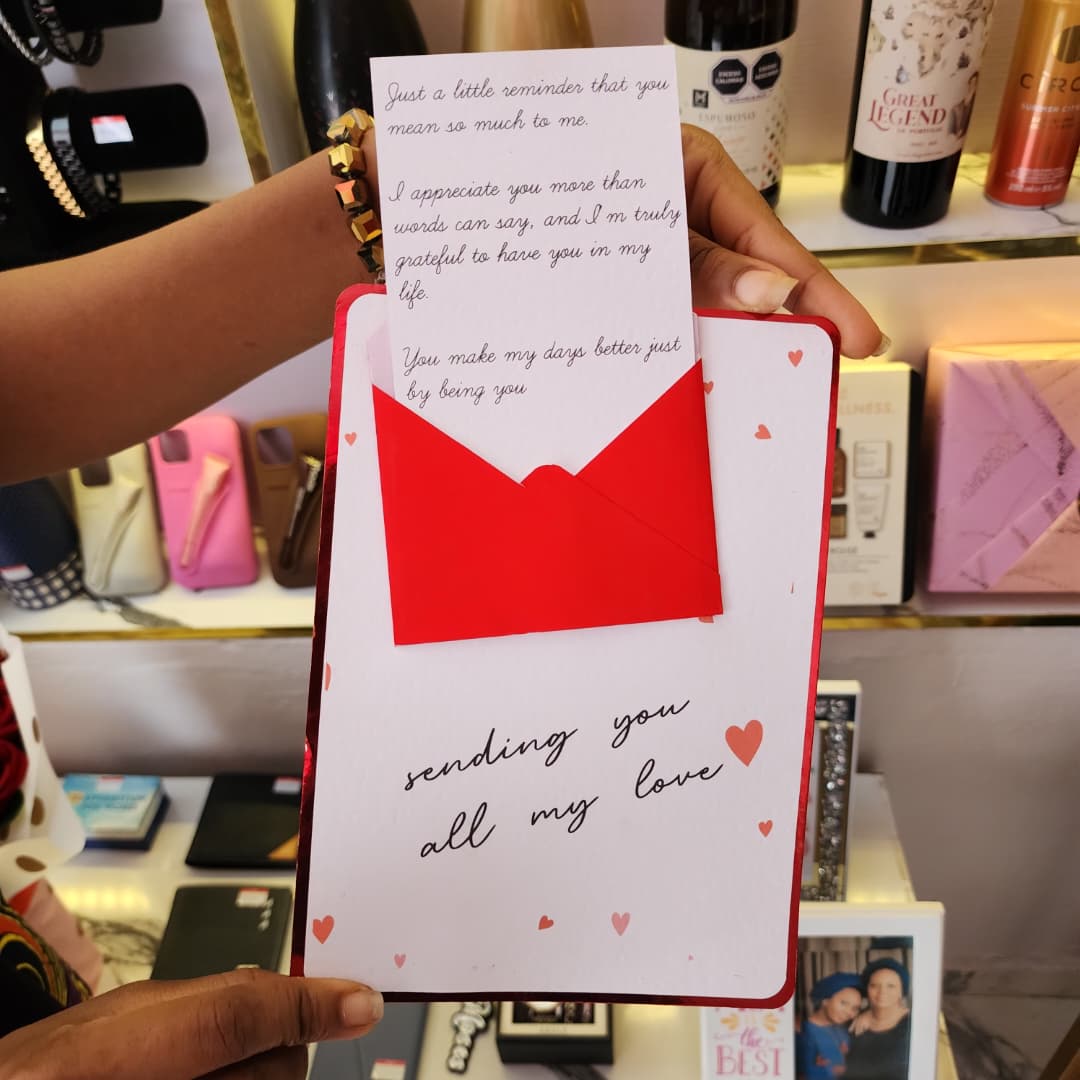 Just a little reminder that you
mean so much to me.
I appreciate you more than
words can say, and I'm truly
grateful to have you in my
life.
You make my days better just
by being you
sending you
all my love
ESPUMOSO
GREAT
LEGEND
SUMMER
the
BEST